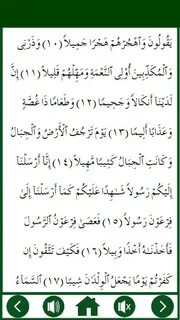 يَقُولُونَ وَٱهْجُرْهُمْ هَجْرًا جَمِيلًا (١٠) وَذَرْنِى
وَٱلْمُكَذِّبِينَ أُو۟لِى ٱلنَّعْمَةِ وَمَهِّلْهُمْ قَلِيلًا (١١) إِنَّ
لَدَيْنَآ أَنكَالًا وَجَحِيمًا (١٢) وَطَعَامًا ذَا غُصَّةٍ
وَعَذَابًا أَلِيمًا (١٣) يَوْمَ تَرْجُفُ ٱلْأَرْضُ وَٱلْجِبَالُ
وَكَانَتِ ٱلْجِبَالُ كَثِيبًا مَّهِيلًا (١٤) إِنَّآ أَرْسَلْنَآ
إِلَيْكُمْ رَسُولًا شَـٰهِدًا عَلَيْكُمْ كَمَآ أَرْسَلْنَآ إِلَىٰ
فِرْعَوْنَ رَسُولًا (١٥) فَعَصَىٰ فِرْعَوْنُ ٱلرَّسُولَ
فَأَخَذْنَـٰهُ أَخْذًا وَبِيلًا (١٦) فَكَيْفَ تَتَّقُونَ إِن
كَفَرْتُمْ يَوْمًا يَجْعَلُ ٱلْوِلْدَٰنَ شِيبًا (١٧) ٱلسَّمَآءُ